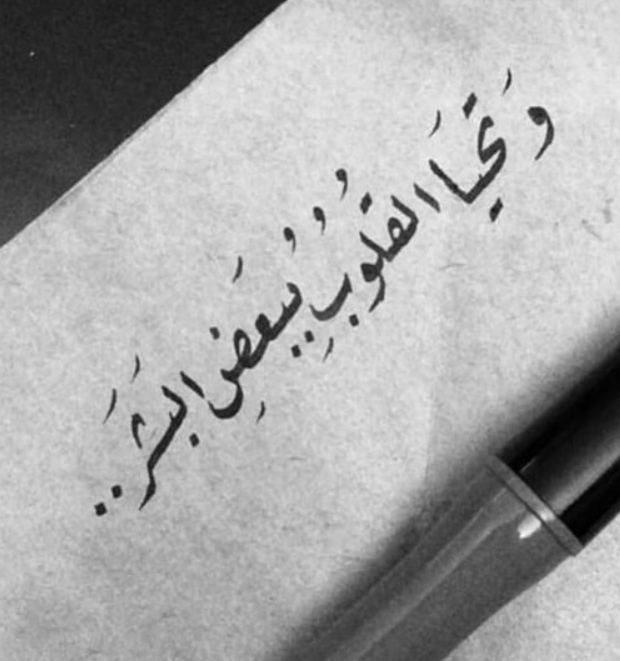 وَتَحْيَا القُلُوبُ بِبَعْضِ البَشَرِ..